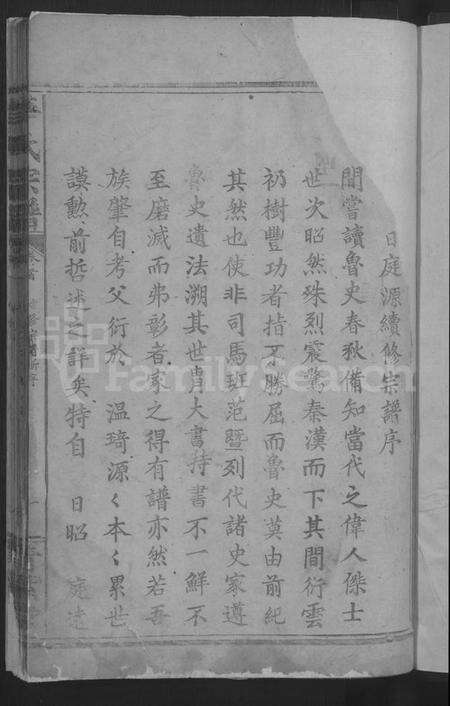 日庭源續修宗譜序
間嘗讀魯史春秋備知當代之偉人傑士
世次昭然殊烈震驚秦漢而下其間衍雲
礽樹豐功者指不勝屈而魯史莫由前紀
其然也使非司馬班范暨列代諸史家遵
魯史遺法溯其世胄大書特書不一鮮不
至磨滅而弗彰者家之得有譜亦然若吾
族肇自考父衍於 温琦源〻本〻累世
謨勲前哲述之詳矣特自 日昭 庭
氏宗譜
FamilySearch